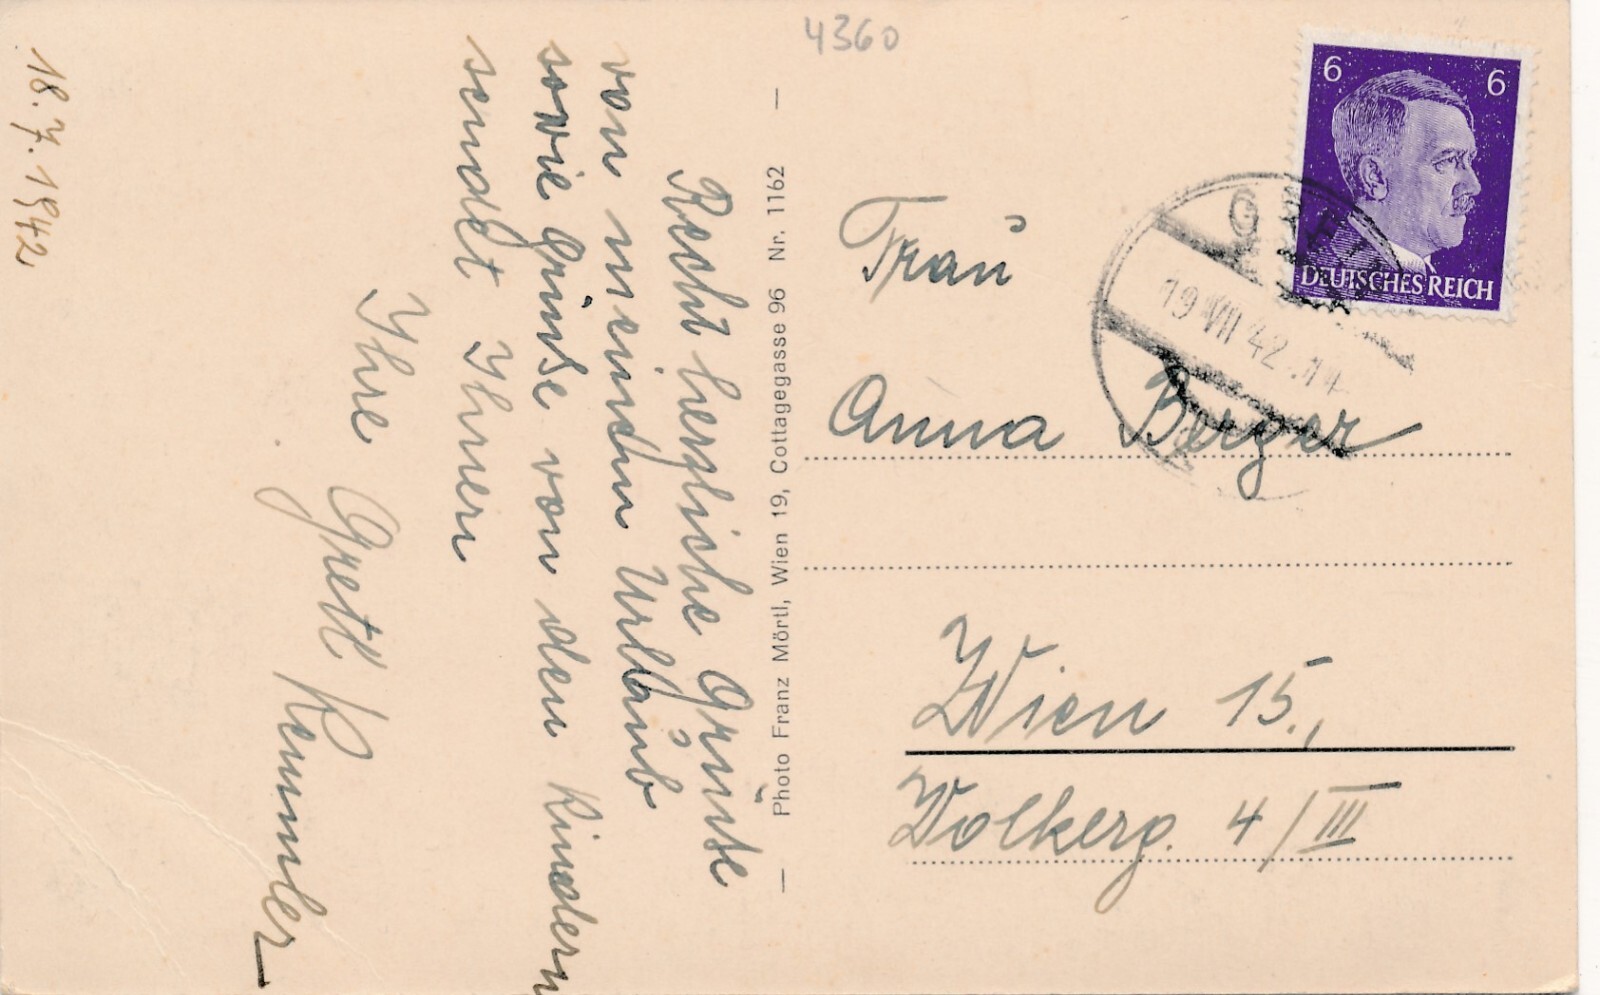 4360
18.7.1942
Recht herzliche Grüße
von meinem Urlaub
sowie Grüße von den Kindern
sendet Ihnen
Ihre Gretl Kemmler
— Photo Franz Mörtl, Wien 19, Cottagegasse 96 Nr. 1162 —
6 6
DEUTSCHES REICH
19 VII 42
Frau
Anna Berger
Wien 15.,
Wolkerg. 4/III